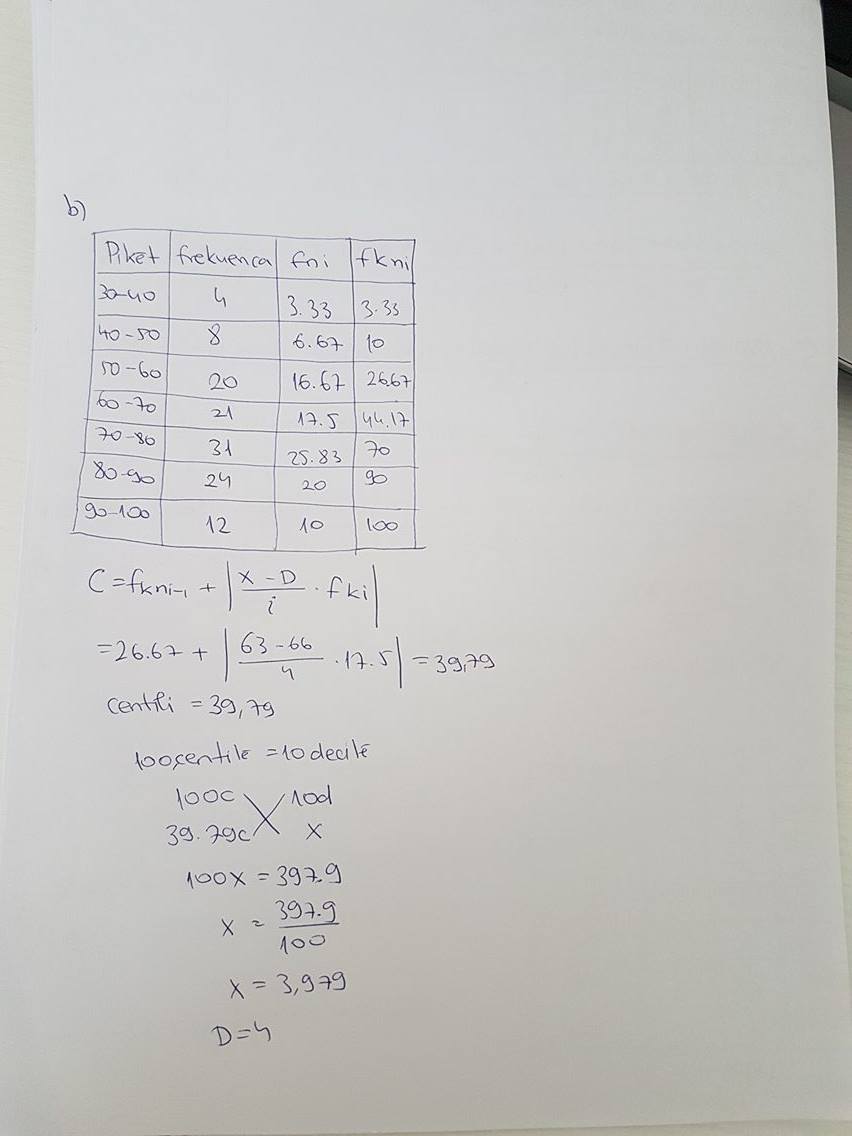 b)
Piket frekuenca fni fkni
30-40 4 3.33 3.33
40-50 8 6.67 10
50-60 20 16.67 26.67
60-70 21 17.5 44.17
70-80 31 25.83 70
80-90 24 20 90
90-100 12 10 100
C = fkni-1 + | X - D / i · fki |
= 26.67 + | 63 - 66 / 4 · 17.5 | = 39,79
centili = 39,79
100 centile = 10 decile
100c 10d
39.79c x
100x = 397.9
x = 397.9 / 100
x = 3,979
D = 4